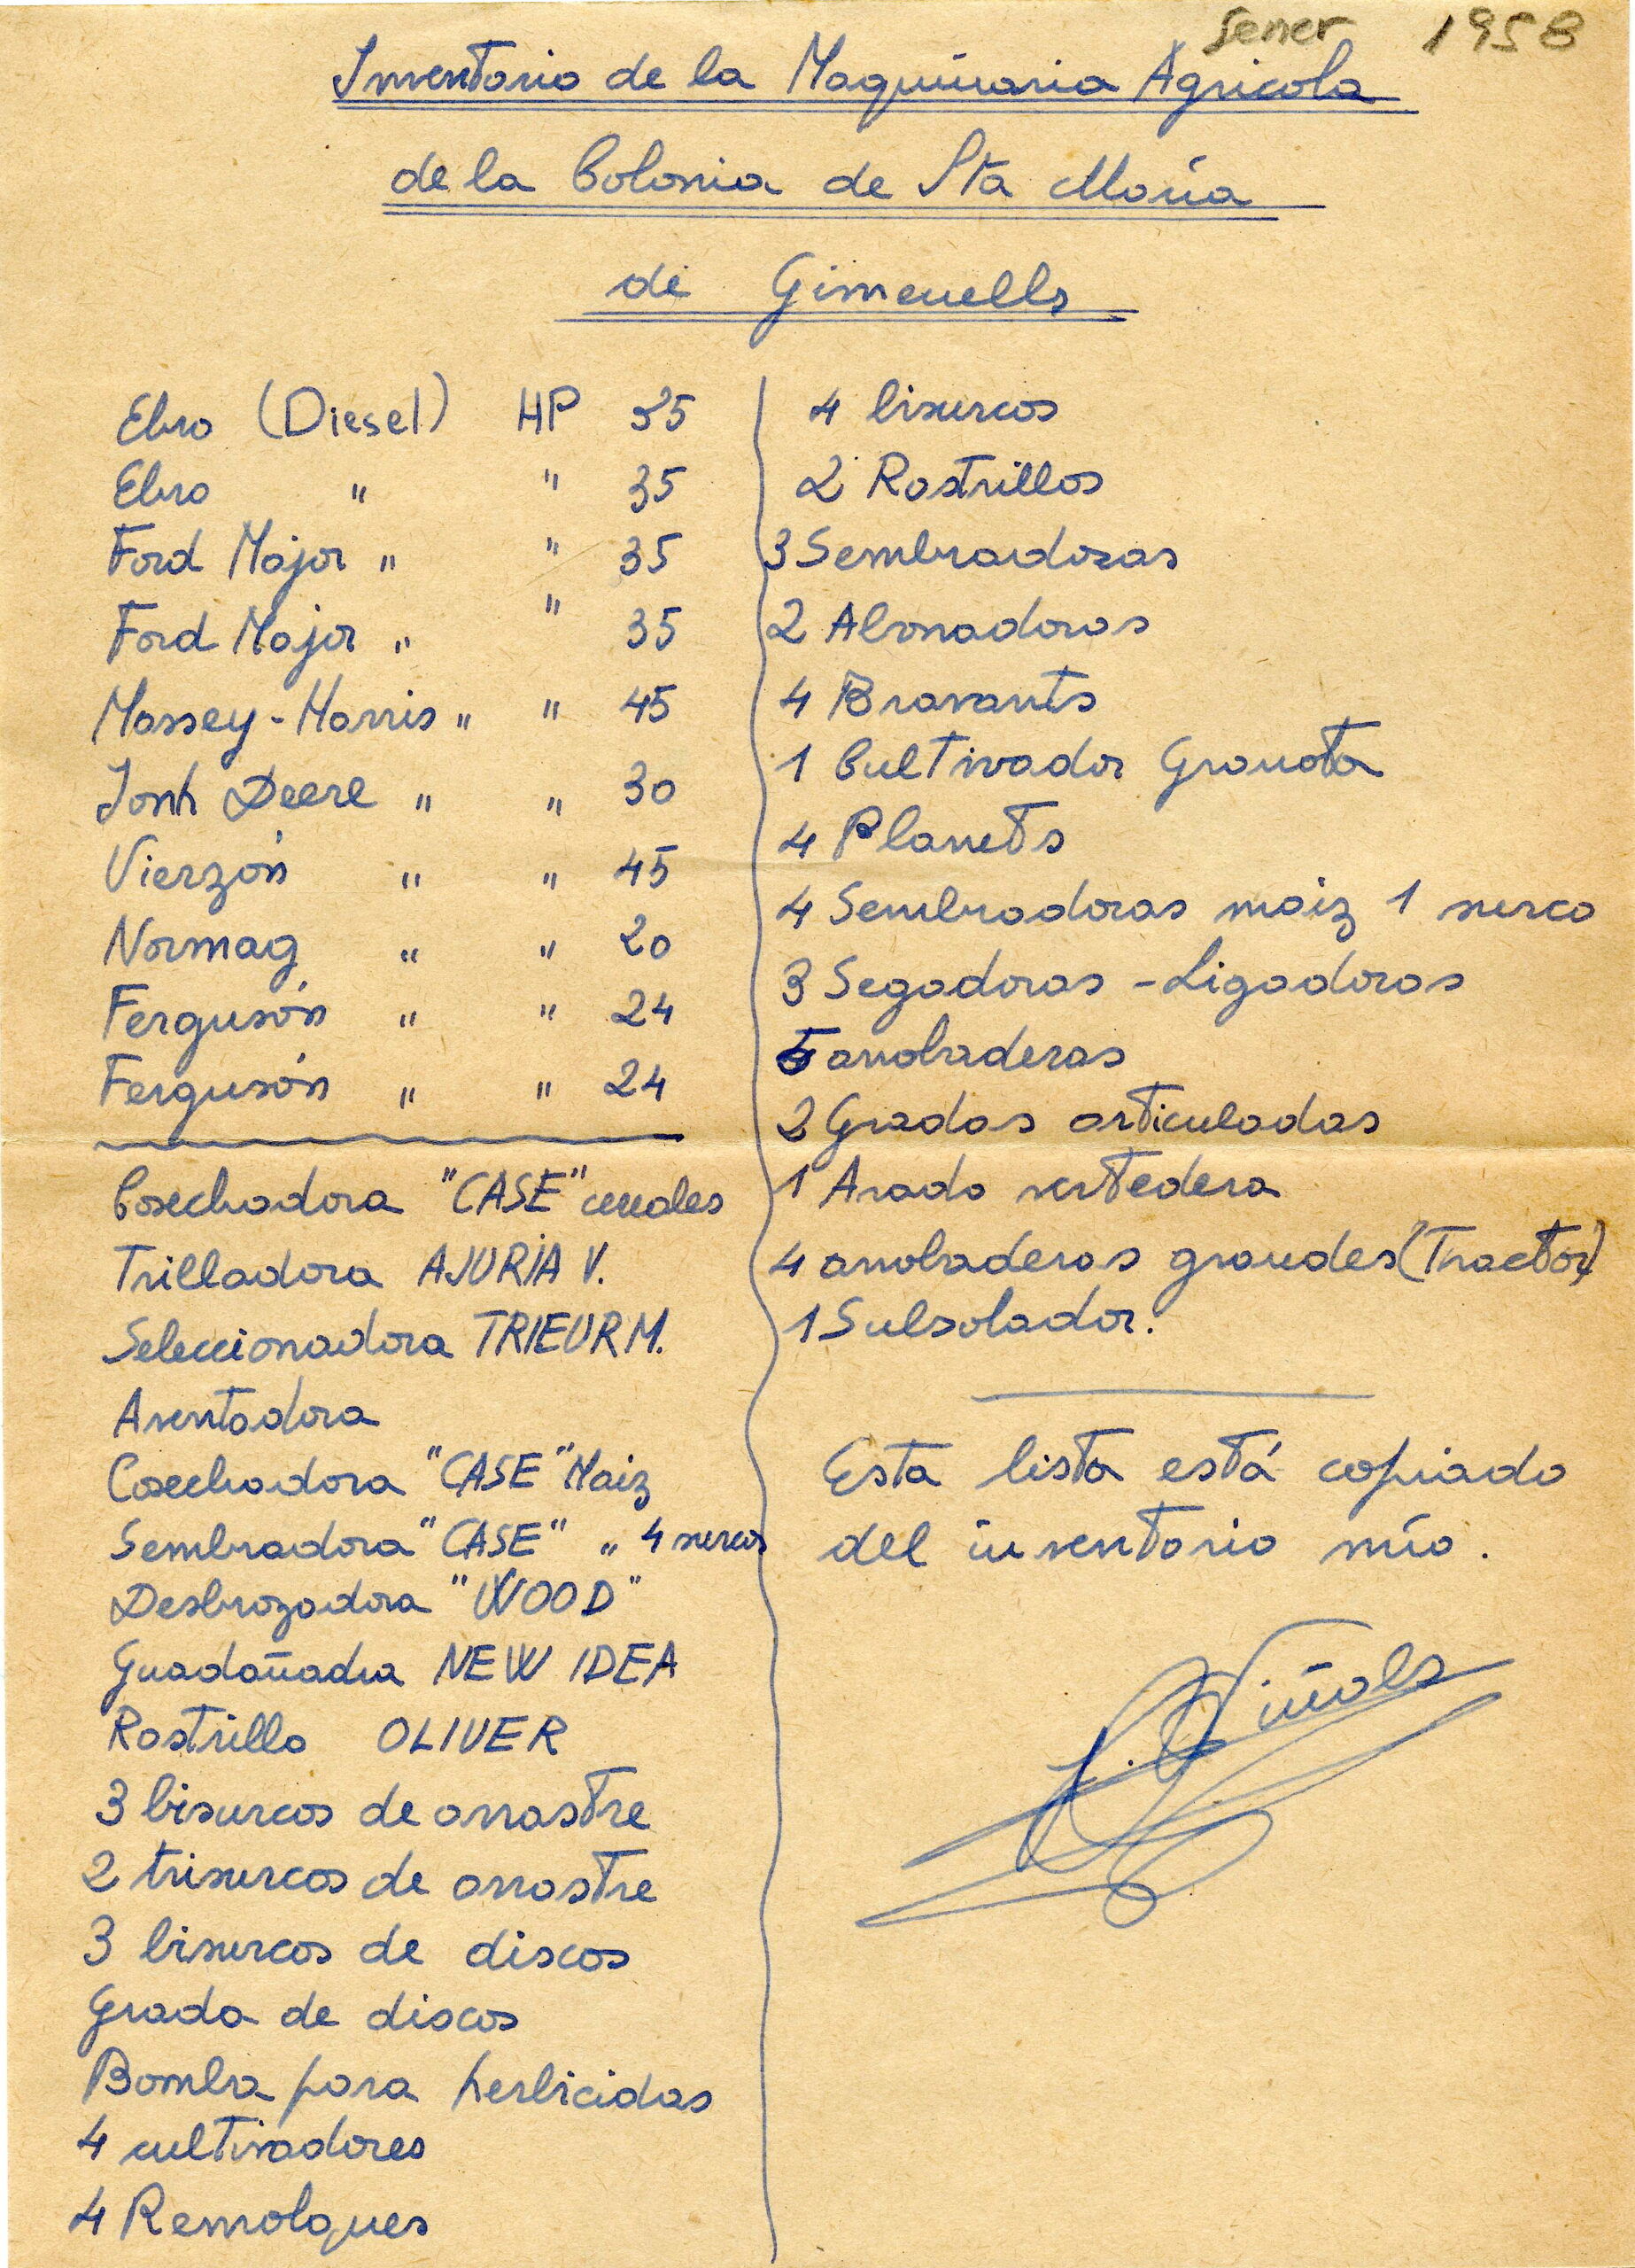 Gener 1958
Inventario de la Maquinaria Agricola
de la Colonia de Sta María
de Gimenells
Ebro (Diesel) HP 35
Ebro " " 35
Ford Major " " 35
Ford Major " " 35
Massey-Harris " " 45
Jonh Deere " " 30
Vierzón " " 45
Normag " " 20
Fergusón " " 24
Fergusón " " 24
Cosechadora "CASE" cereales
Trilladora AJURIA V.
Seleccionadora TRIEUR M.
Aventadora
Cosechadora "CASE" Maiz
Sembradora "CASE" " 4 surcos
Desbrozadora "WOOD"
Guadañadra NEW IDEA
Rastrillo OLIVER
3 bisurcos de arrastre
2 trisurcos de arrastre
3 bisurcos de discos
Grada de discos
Bomba para herbicidas
4 cultivadores
4 Remolques
4 bisurcos
2 Rastrillos
3 Sembradoras
2 Abonadoras
4 Bravants
1 Cultivador Granota
4 Planets
4 Sembradoras maiz 1 surco
3 Segadoras - Ligadoras
5 arrobaderas
2 Gradas articuladas
1 Arado vertedera
4 arrobaderas grandes (Tractor)
1 Subsolador.
Esta lista está copiado
del inventario mío.
J. Viñals